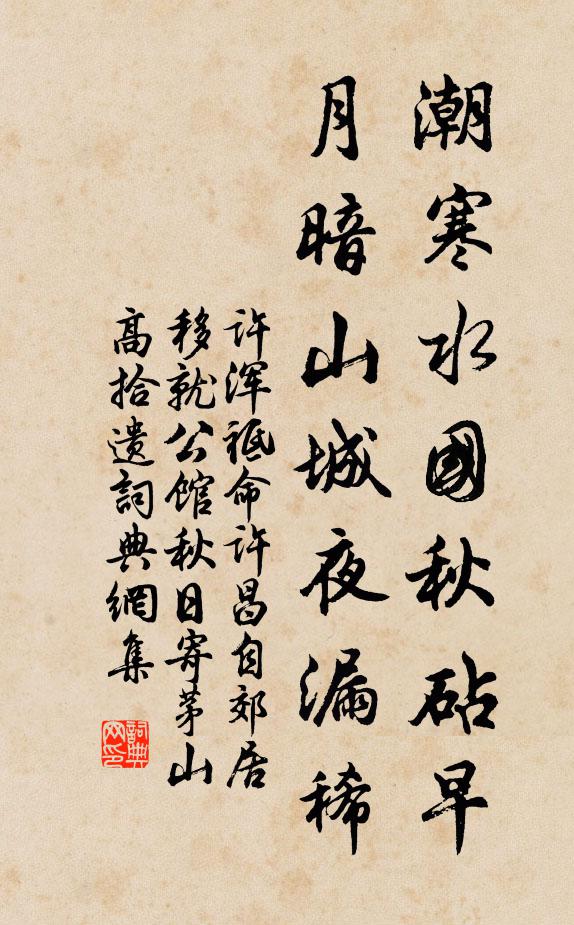 潮寒水國秋砧早
月暗山城夜漏稀
许浑祗命许昌自郊居
移就公馆秋日寄茅山
高拾遗詞典網集
詞典網印